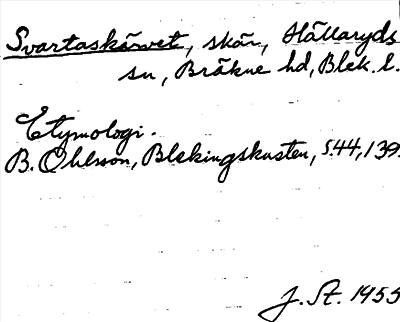 Svartaskärvet, skär, Hällaryds
sn, Bräkne hd, Blek. l.
Etymologi.
B. Ohlsson, Blekingskusten, s. 44, 139.
J. St. 1955